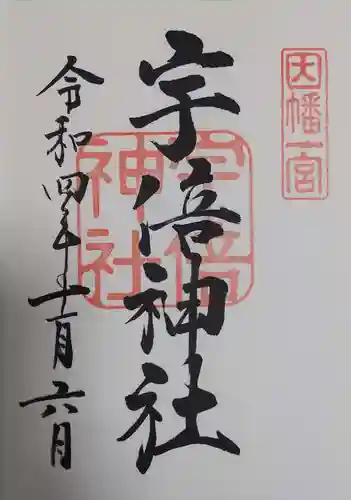 因幡一宮
宇倍神社
宇倍神社
令和四年十一月六日